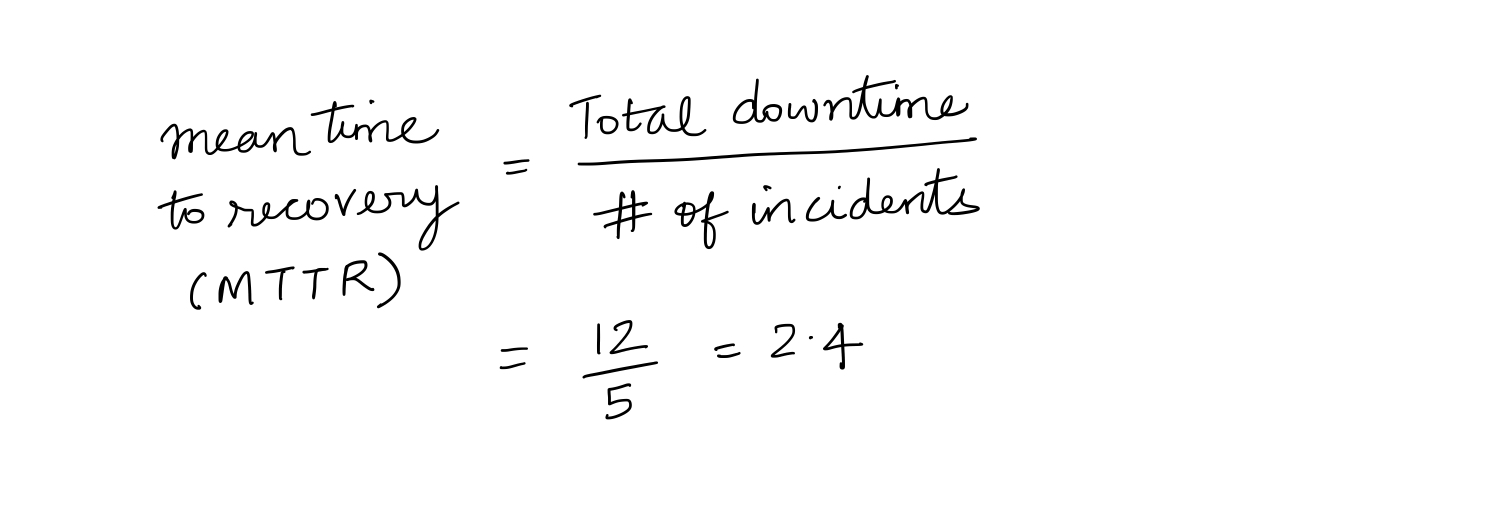 mean time to recovery (MTTR) = Total downtime / # of incidents
= 12 / 5 = 2.4